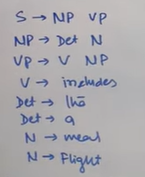 S → NP VP
NP → Det N
VP → V NP
V → includes
Det → the
Det → a
N → meal
N → Flight